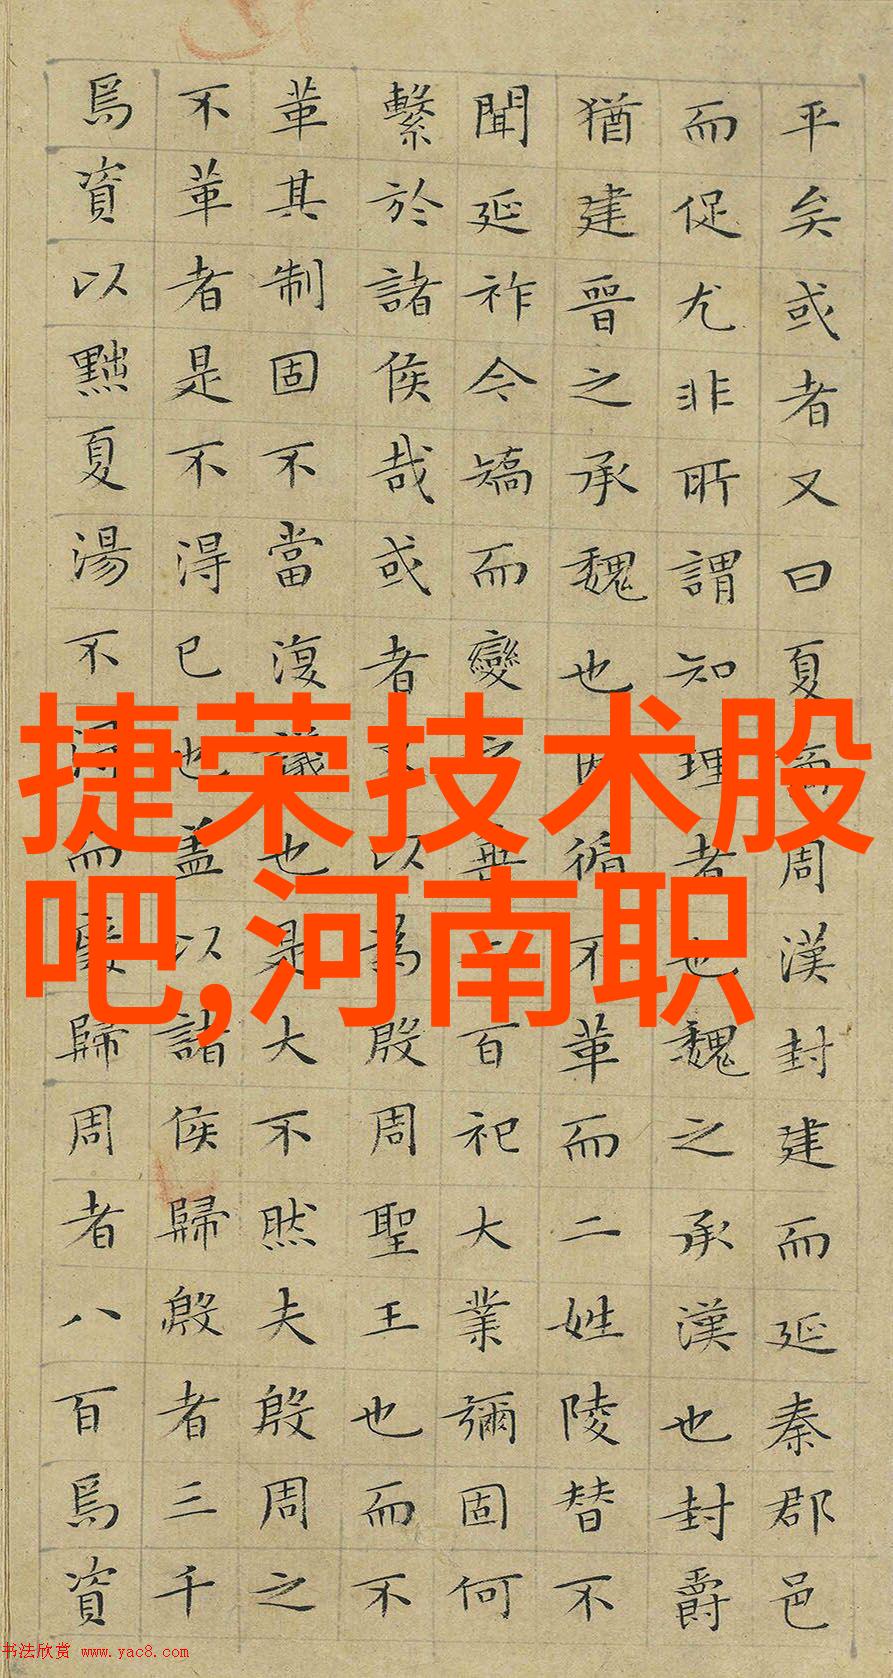 平矣或者又曰夏商周漢封建而延秦郡邑
而促尤非所謂知理者也魏之承漢也封爵
猶建晉之承魏也因循不革而二姓陵替不
聞延祚今矯而變之垂二百祀大業彌固何
繫於諸侯哉或者又以為殷周聖王也而不
革其制固不當復議也是大不然夫殷周之
不革者是不得已也盖以諸侯歸殷者三千
焉資以黜夏湯不得而廢歸周者八百焉資
捷荣技术股
吧,河南职
书法欣赏 www.yac8.com